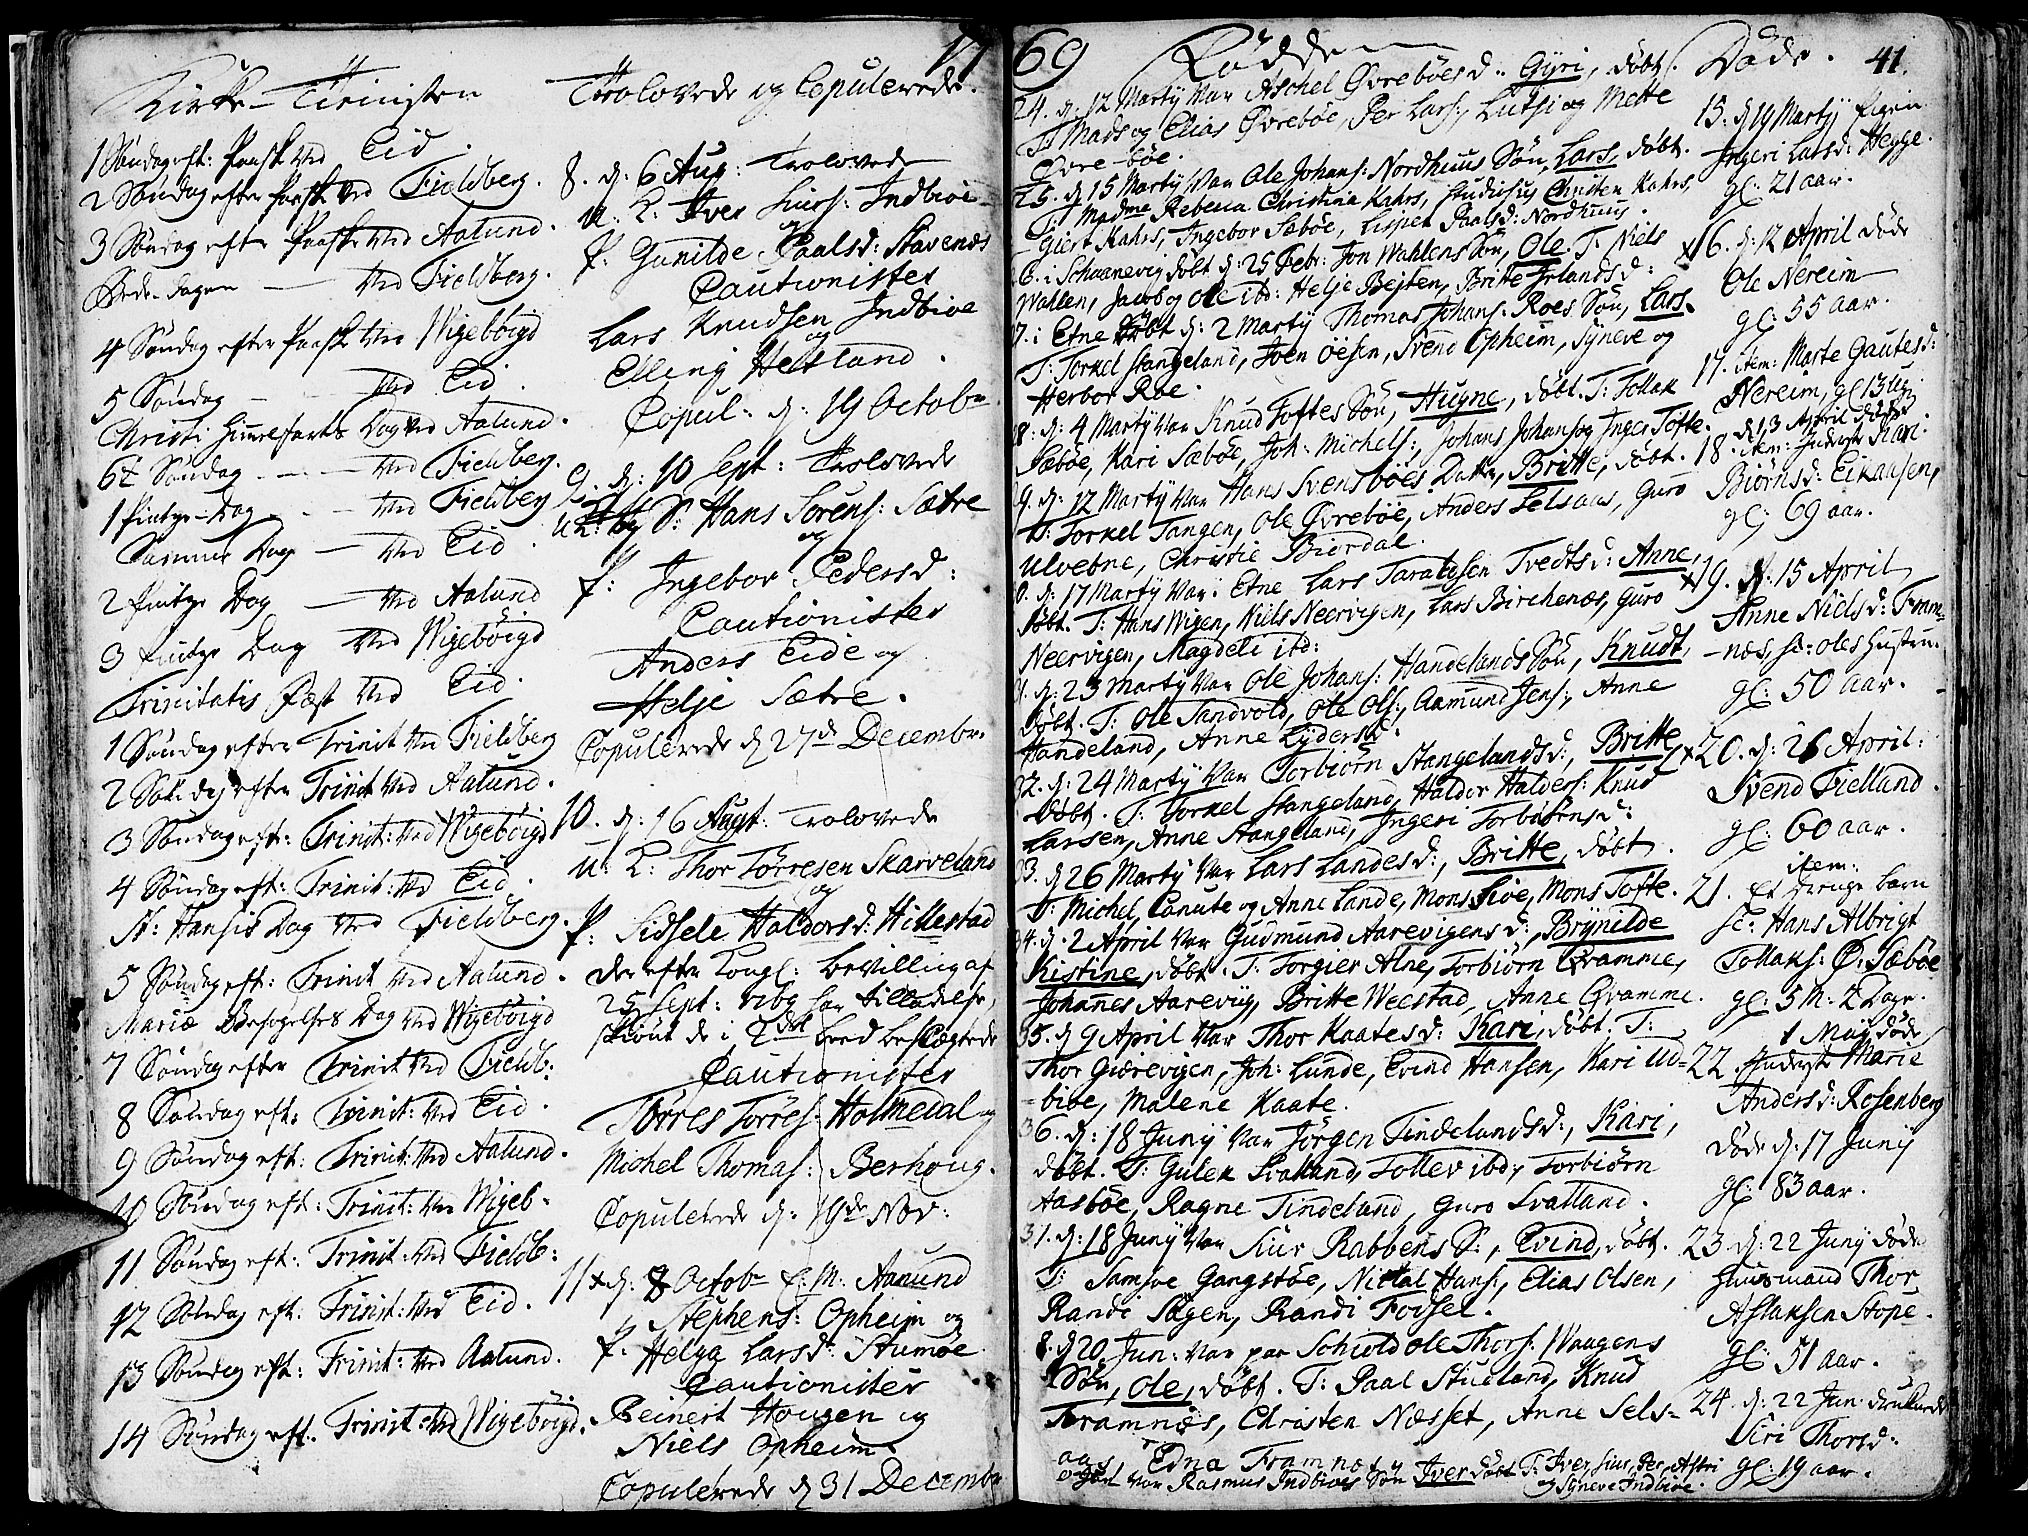 1769
Kirke-Tienisten
1 Søndag eft: Paaske ved Eid.
2 Søndag efter Paaske ved Fieldberg.
3 Søndag efter Paaske ved Aalund.
Bede-Dagen — ved Fieldberg.
4 Søndag efter Paaske ved Wigebøigd
5 Søndag — ved Eid.
Christi Himmelfarts Dag ved Aalund.
6te Søndag — ved Fieldberg.
1 Pintze-Dag — ved Fieldberg
Samme Dag — ved Eid.
2 Pintze Dag — ved Aalund
3 Pintze Dag ved Wigebøigd
Trinitatis Fæst ved Eid.
1 Søndag efter Trinit ved Fieldberg
2 Søndag efter Trinit ved Aalund.
3 Søndag eft: Trinit: ved Wigebøigd
4 Søndag eft: Trinit: ved Eid.
St: Hansis Dag ved Fieldberg.
5 Søndag eft: Trinit ved Aalund.
Mariæ Besøgelses Dag ved Wigebøigd
7 Søndag efter Trinit ved Fieldb:
8 Søndag eft: Trinit: ved Eid.
9 Søndag eft: Trinit: ved Aalund.
10 Søndag eft: Trinit: ved Wigeb-
11 Søndag eft: Trinit: ved Fieldb:
12 Søndag eft: Trinit: ved Eid.
13 Søndag eft: Trinit: ved Aalund.
14 Søndag eft: Trinit: ved Wigebøigd.
Trolovede og Copulerede.
8. d: 6 Aug: Trolovede
u: K: Iver Siurs: Indbioe
og
P: Gunilde Paalsd: Stavenæs
Cautionister
Lars Knudsen Indbioe
og
Elling Hetland.
Copul: d: 19 Octobr
9. d: 10 Sept: Trolovede
S: Hans Sørens: Sætre
og
P: Ingebor Pedersd:
Cautionister
Anders Eide og
Helje Sætre.
Copulerede d 27de Decembr.
10. d: 16 Augt: Trolovede
u: K: Thor Tørresen Skarveland
og
P: Sidsele Haldorsd: Hillestad
der efter Kongl: bevilling af
25 Sept: har tilladelse,
skiønt de i 2det Leed beslægtede
Cautionister
Torres Torres: Holmedal og
Michel Thomas: Berhoug.
Copulerede d: 19de Nov:
11 x d: 8 Octobr E: M: Aanund
Stephens: Opheim og
P: Helga Larsd: Stumøe
Cautionister
Reinert Hougen og
Niels Opheim.
Copulerede d 31 Decembr
Fødde
24. d: 12 Marty var Aschel Øvrebøes d: Gyri, døbt.
T: Mads og Elias Øvrebøe, Per Lars:, Lutsi og Mette
Øvre-bøe.
25. d 15 Marty var Ole Johans: Nordhuus Søn, Lars, døbt.
T: Madme Rebecca Christina Kahrs, Studiosus Christen Kahrs,
Giert Kahrs, Ingebor Sæbøe, Lispet Paalsd: Nordhuus.
6. i Schaanevig døbt d: 25 Febr: Jon Wahlens Søn, Ole. T: Niels
Wahlen, Jacob og Ole ibd: Helje Bejten, Britte Erlandsd:
7. i Etne døbt d: 2 Marty Thomas Johans: Roes Søn, Lars.
T: Torkel Stangeland, Joen Øesen, Svend Opheim, Syneve og
Herbor Roe.
8. d: 4 Marty var Knud Toftes Søn, Hugne, døbt. T: Tollak
Sæbøe, Kari Sæbøe, Joh: Michels:, Johans Johans og Inger Tofte.
9. d: 12 Marty var Hans Svensbøes Datter, Britte, døbt.
T: Torkel Tangen, Ole Øvrebøe, Anders Selsaas, Guro
Ulvebne, Christie Biordal.
0. d: 17 Marty var i Etne Lars Taraldsen Tvedts d: Anne,
døbt. T: Hans Wigen, Niels Neervigen, Lars Birchenæs, Guro
Neervigen, Magdeli ibd:
1. d: 23 Marty var Ole Johans: Handelands Søn, Knudt,
døbt. T: Ole Sandvold, Ole Ols:, Aamund Jens:, Anne
Handeland, Anne Lydersd:
32. d: 24 Marty var Torbiørn Stangelands d:, Britte,
døbt. T: Torkel Stangeland, Haldor Halders: Knud
Larsen, Anne Stangeland, Ingeri Torbiørnsd:
33. d 26 Marty var Lars Landes d:, Britte, døbt.
T: Michel, Canute og Anne Lande, Mons Lioe, Mons Tofte.
34. d. 2 April var Gudmund Aarevigens d:, Brynilde
Kistine, døbt. T: Torgier Alne, Torbiørn Qvamme,
Johanes Aarevig, Britte Weestad, Anne Qvamme.
35. d 9 April var Thor Kaates d: Kari, døbt. T:
Thor Giærevigen, Joh: Lunde, Evind Hansen, Kari Ud-
-bioe, Malene Kaate.
36. d: 18 Juny var Jørgen Tindelands d:, Kari,
døbt. T: Gulek Svatland, Tollev ibd:, Torbiørn
Aasbøe, Ragne Tindeland, Guro Svatland.
37. d: 18 Juny var Siur Rabbens S:, Evind, døbt.
T: Samsoe Gangstøe, Nicolai Hans:, Elias Olsen,
Randi Sagen, Randi Fodsel.
8. d 20 Jun: var paa Schiold Ole Thors: Waagens
Søn, Ole, døbt. T: Paal Stueland, Knud
Framnæs, Christen Næsset, Anne Sels-
aas, Edna Framnæs.
var Rasmus Indbioes Søn Iver døbt T: Iver, Siur, Per, Astri
og Syneve Indbioe.
Døde. 41.
15. d 19 Marty
Ingeri Larsd: Hegge.
gl: 21 aar.
x 16. d: 12 April døde
Ole Nereim
gl: 55 aar.
17. item: Marte Gautesd:
Nereim, gl 13 ug:
d 13 April døde
18. item: Inderste Kari
Biørnsd: Eikaasen,
gl: 69 aar.
x 19. d: 15 April
Anne Nielsd: Fram-
-næs, sc: Oles Hustru.
gl: 50 aar.
x 20. d: 26 April:
Svend Fielland.
gl: 60 aar.
item:
21. et Drenge barn
sc: Hans Albrigt
Tollaks: Ø: Sæbøe
gl: 5 M: 2 Dage.
1 Maij døde
22. Inderste Marie
Andersd: Rosenberg
døde d: 17 Juny
gl: 83 aar.
23 d: 22 Juny døde
Huusmand Thor
Aslaksen Stope.
gl: 51 aar.
24. d: 22 Jun druknede
Siri Thorsd:
gl: 19 aar.